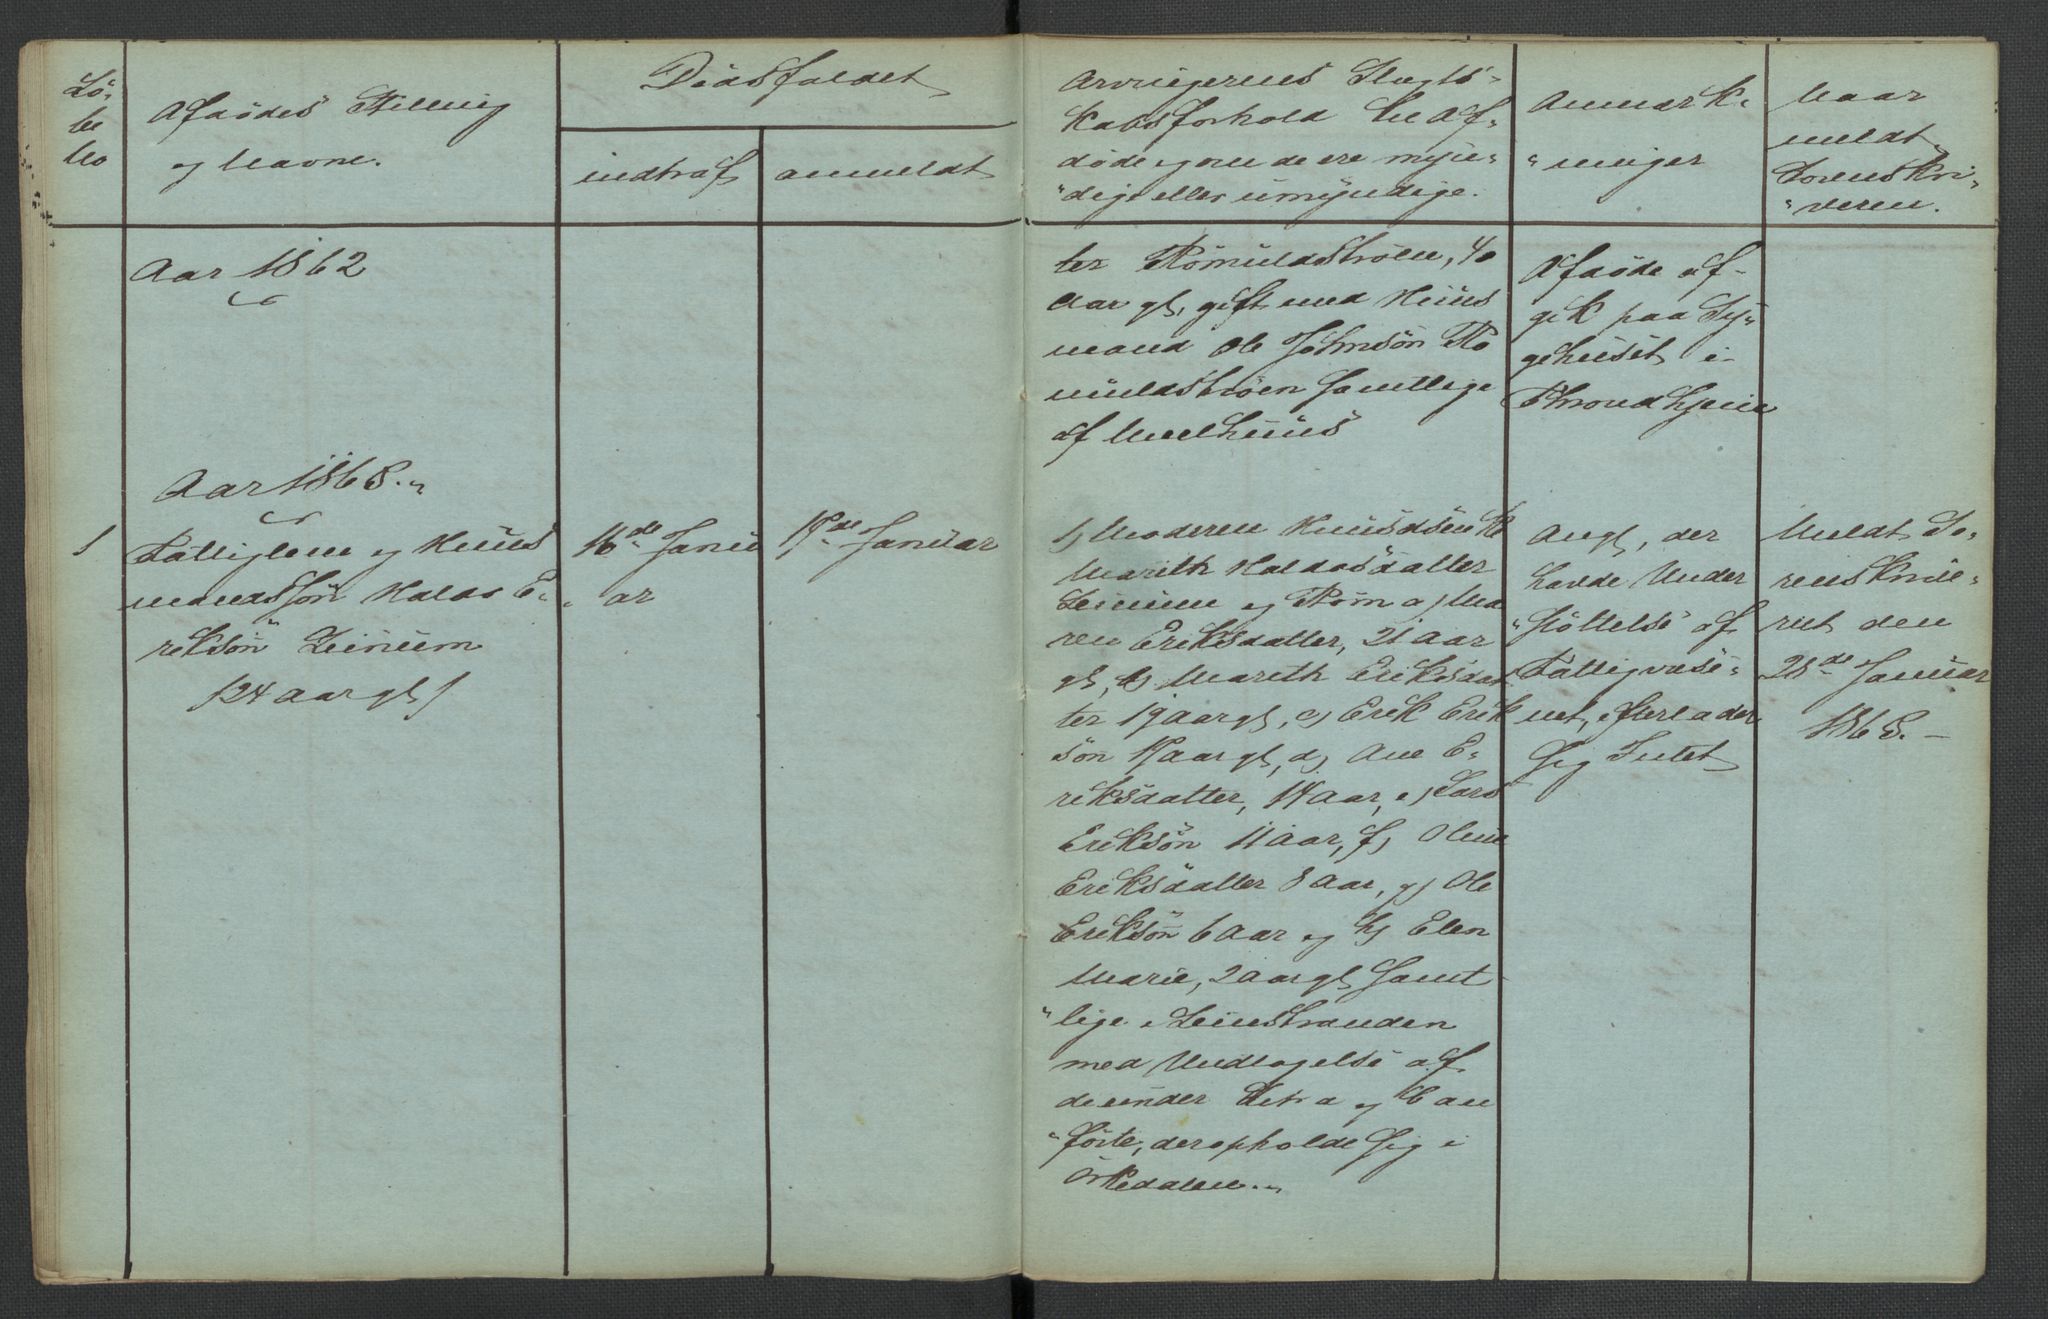 Lö-
be
No
Afdödes Stilling
og Navne.
Dödsfaldet
indtraf
anmeldt
Arvingernes Slægts-
kabsforhold til Af-
döde og om de ere myn-
"dige eller umyndige.
Anmærk-
"ninger
Naar
meldt
Sorenskri-
"veren.
Aar 1862
ter Römuldströen, 40
Aar gl, gift med Huus
mand Ole Johnsön Rö
muldströen samtlige
af Melhuus
Afdöde af-
gik paa Sy-
gehuset i
Throndhjem
Aar 1863.
1
Fattiglem og Huus
mandssön Haldo E-
riksön Leinum
/24 Aar gl/
16de Janu
ar
17de Januar
1) Moderen Huusdsenke
Marith Haldosdatter
Leinum og Börn a) Ma
ren Eriksdatter, 21 Aar
gl, b) Marith Eriksdat
ter 19 Aar gl, c) Erik Erik
sön 17 aar gl, d) Ane E-
riksdatter, 14 Aar, e) Lars
Eriksön 11 Aar, f) Oline
Eriksdatter 8 Aar, g) Ole
Eriksön 6 Aar og h) Elen
Marie, 2 Aar gl samt-
"lige i Leinstranden
med Undtagelse af
de under Litra a og b an
"förte, der opholde sig i
Örkedalen.
Angl, der
havde Under
"stöttelse af
Fattigvæse-
net, efterlader
sig Intet
Meldt So-
renskrive-
ret den
28de Januar
1863.-